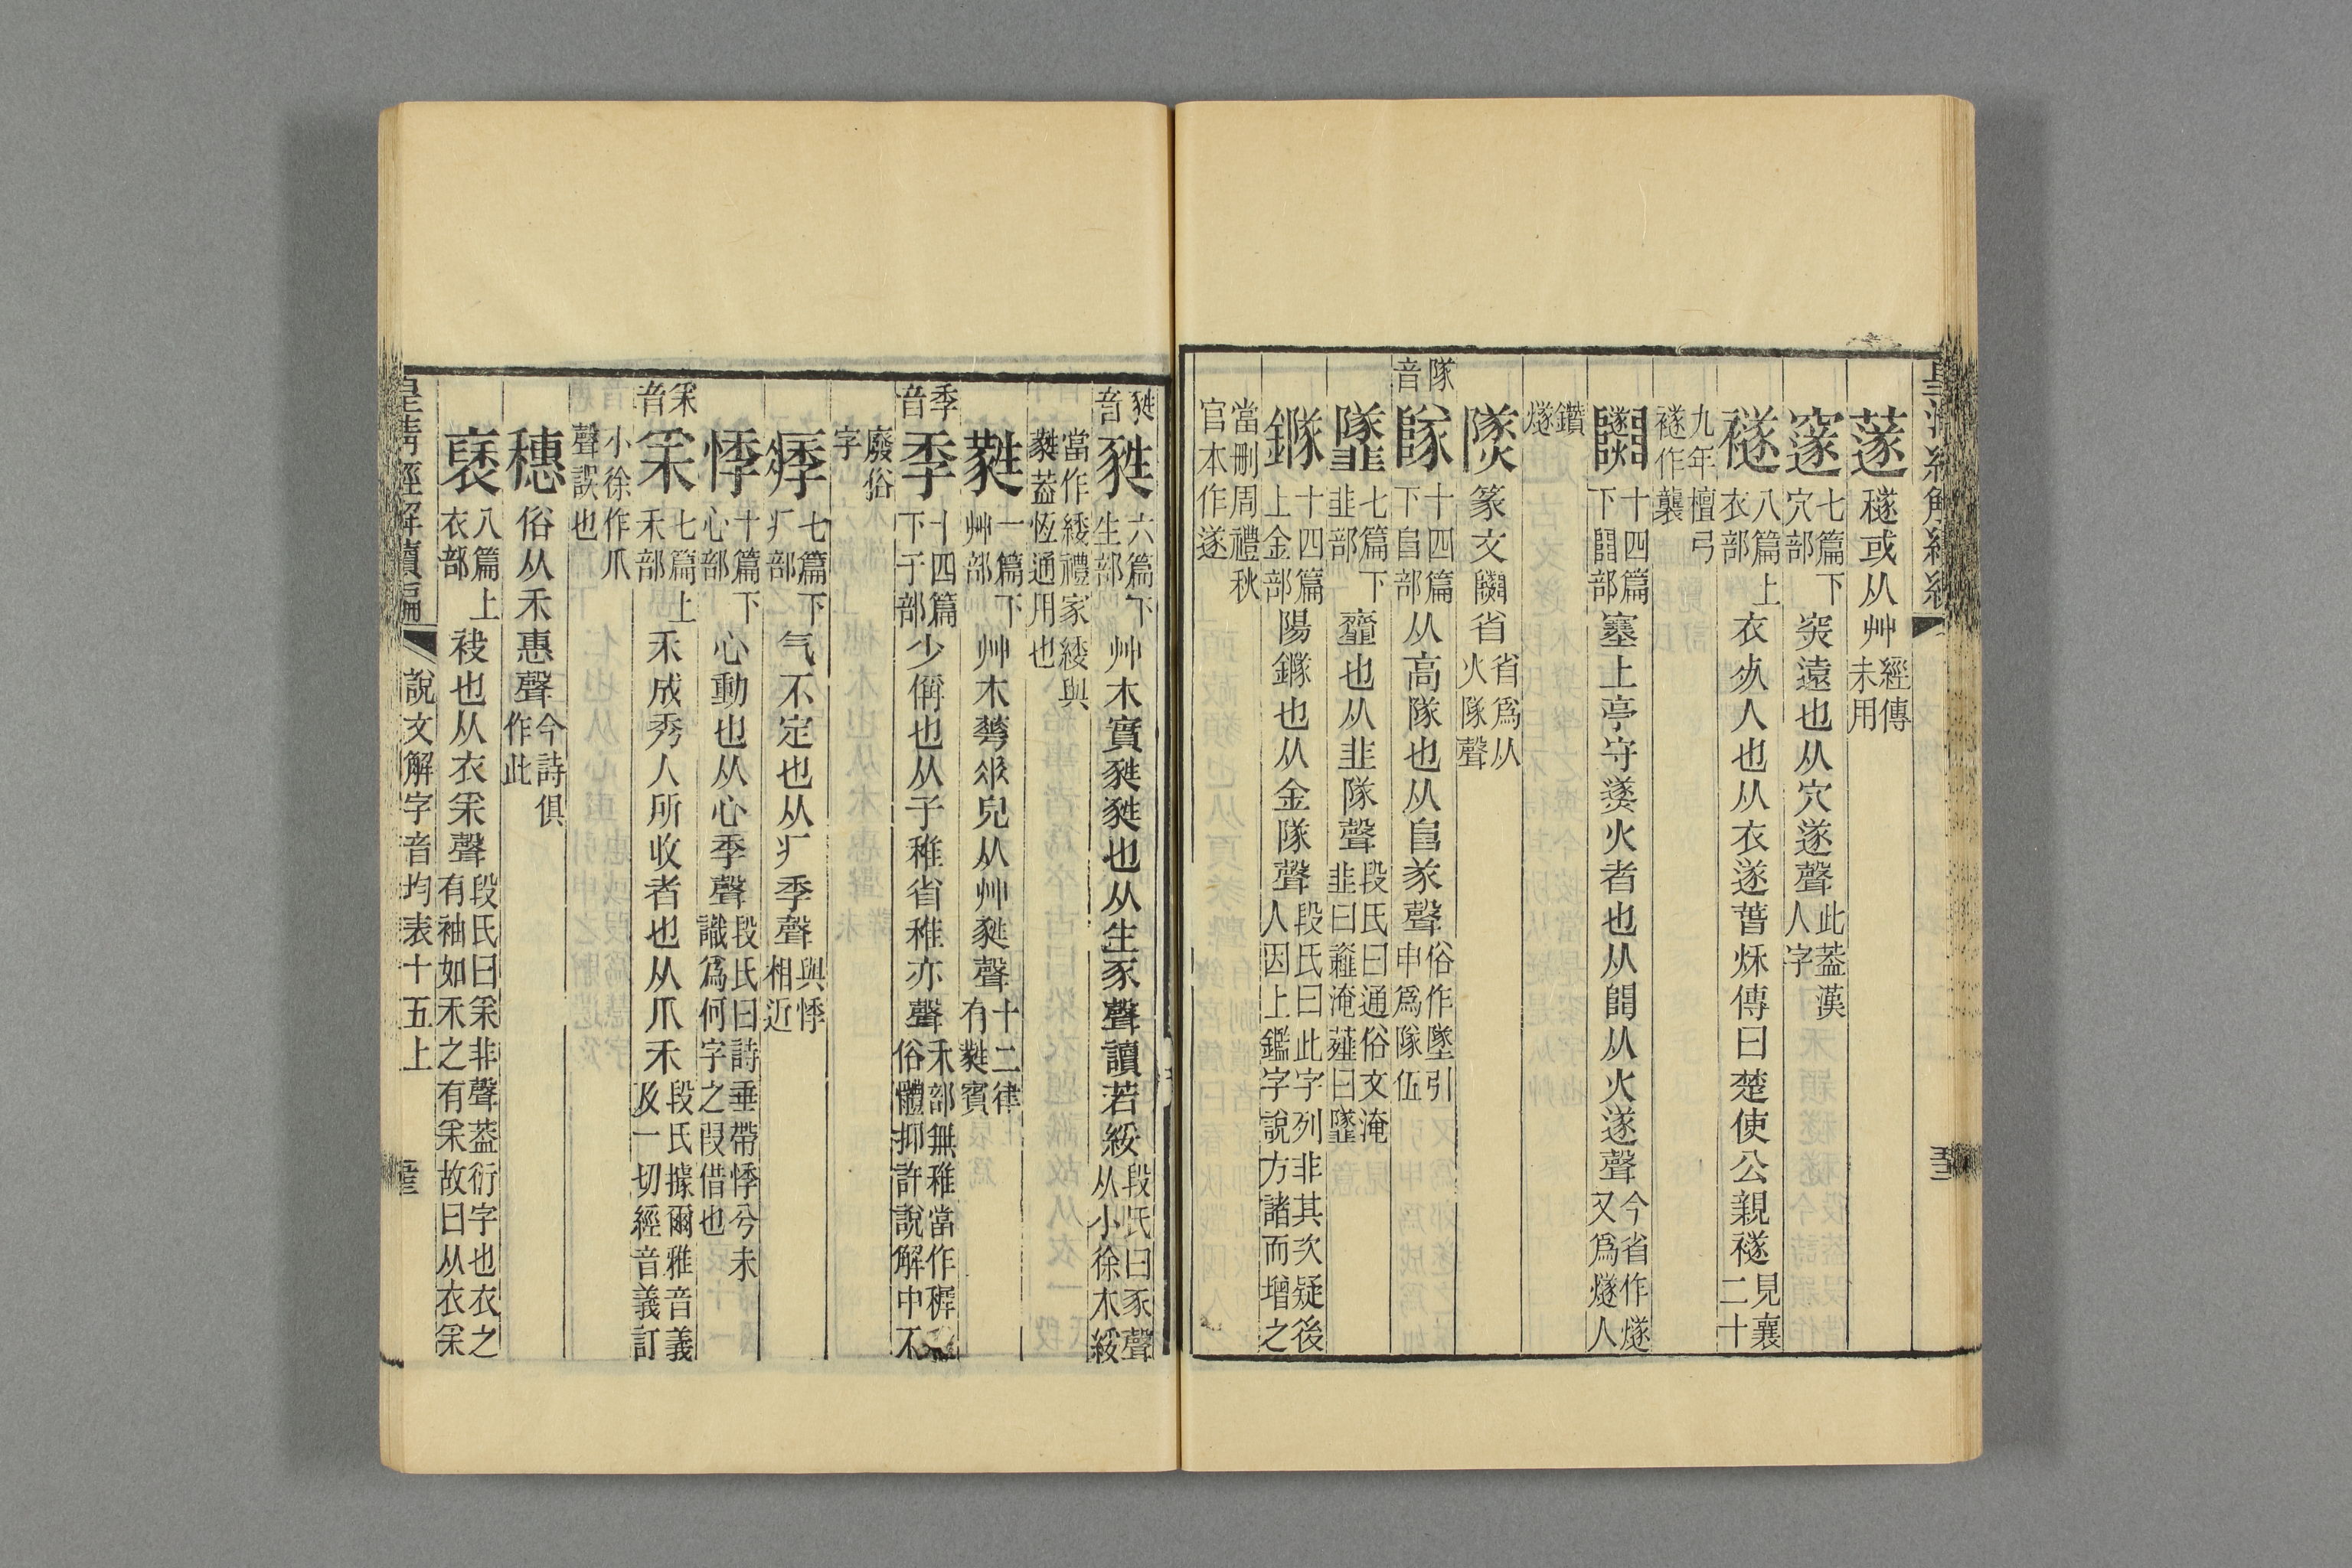 皇清經解續編
䔹穟或从艸經傳未用
䆳七篇下穴部㴱遠也从穴遂聲此葢漢人字
襚八篇上衣部衣𣦸人也从衣遂聲春秋傳曰楚使公親襚見襄二十
九年檀弓襚作襲
十四篇下𨺅部塞上亭守㷭火者也从𨺅从火遂聲今省作燧又爲燧人
鑽燧
篆文省省爲从火隊聲
隊音
隊十四篇下𨸏部从高隊也从𨸏㒸聲俗作墜引申爲隊伍
七篇下韭部韲也从韭隊聲段氏曰通俗文淹韭曰韲淹薤曰
鐆十四篇上金部陽鐆也从金隊聲段氏曰此字列非其次疑後人因上鑑字說方諸而增之
當刪周禮秋官本作遂
甤音
甤六篇下生部艸木實甤甤也从生豕聲讀若綏段氏曰豕聲从小徐木綏
當作緌禮家緌與蕤葢恆通用也
蕤一篇下艸部艸木華𠂹皃从艸甤聲十二律有蕤賓
季音
季十四篇下子部少偁也从子稚省稚亦聲禾部無稚當作稺俗體抑許說解中不
廢俗字
痵七篇下疒部气不定也从疒季聲與悸相近
悸十篇下心部心動也从心季聲段氏曰詩垂帶悸兮未識爲何字之叚借也
采音
采七篇上禾部禾成秀人所收者也从爪禾段氏據爾雅音義及一切經音義訂
小徐作爪聲誤也
穗俗从禾惠聲今詩俱作此
褎八篇上衣部袂也从衣采聲段氏曰采非聲葢衍字也衣之有袖如禾之有采故曰从衣采
皇清經解續編
說文解字音均表十五上